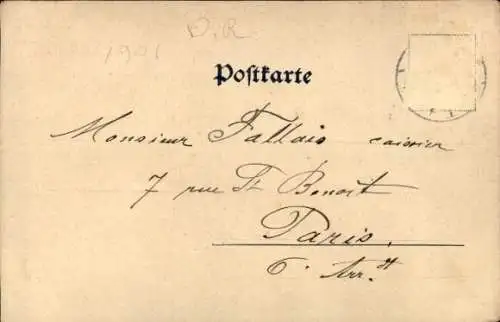 D.R
1901
Postkarte
Monsieur Fallais caissier
7 rue St Benoit
Paris.
6e Arrdt